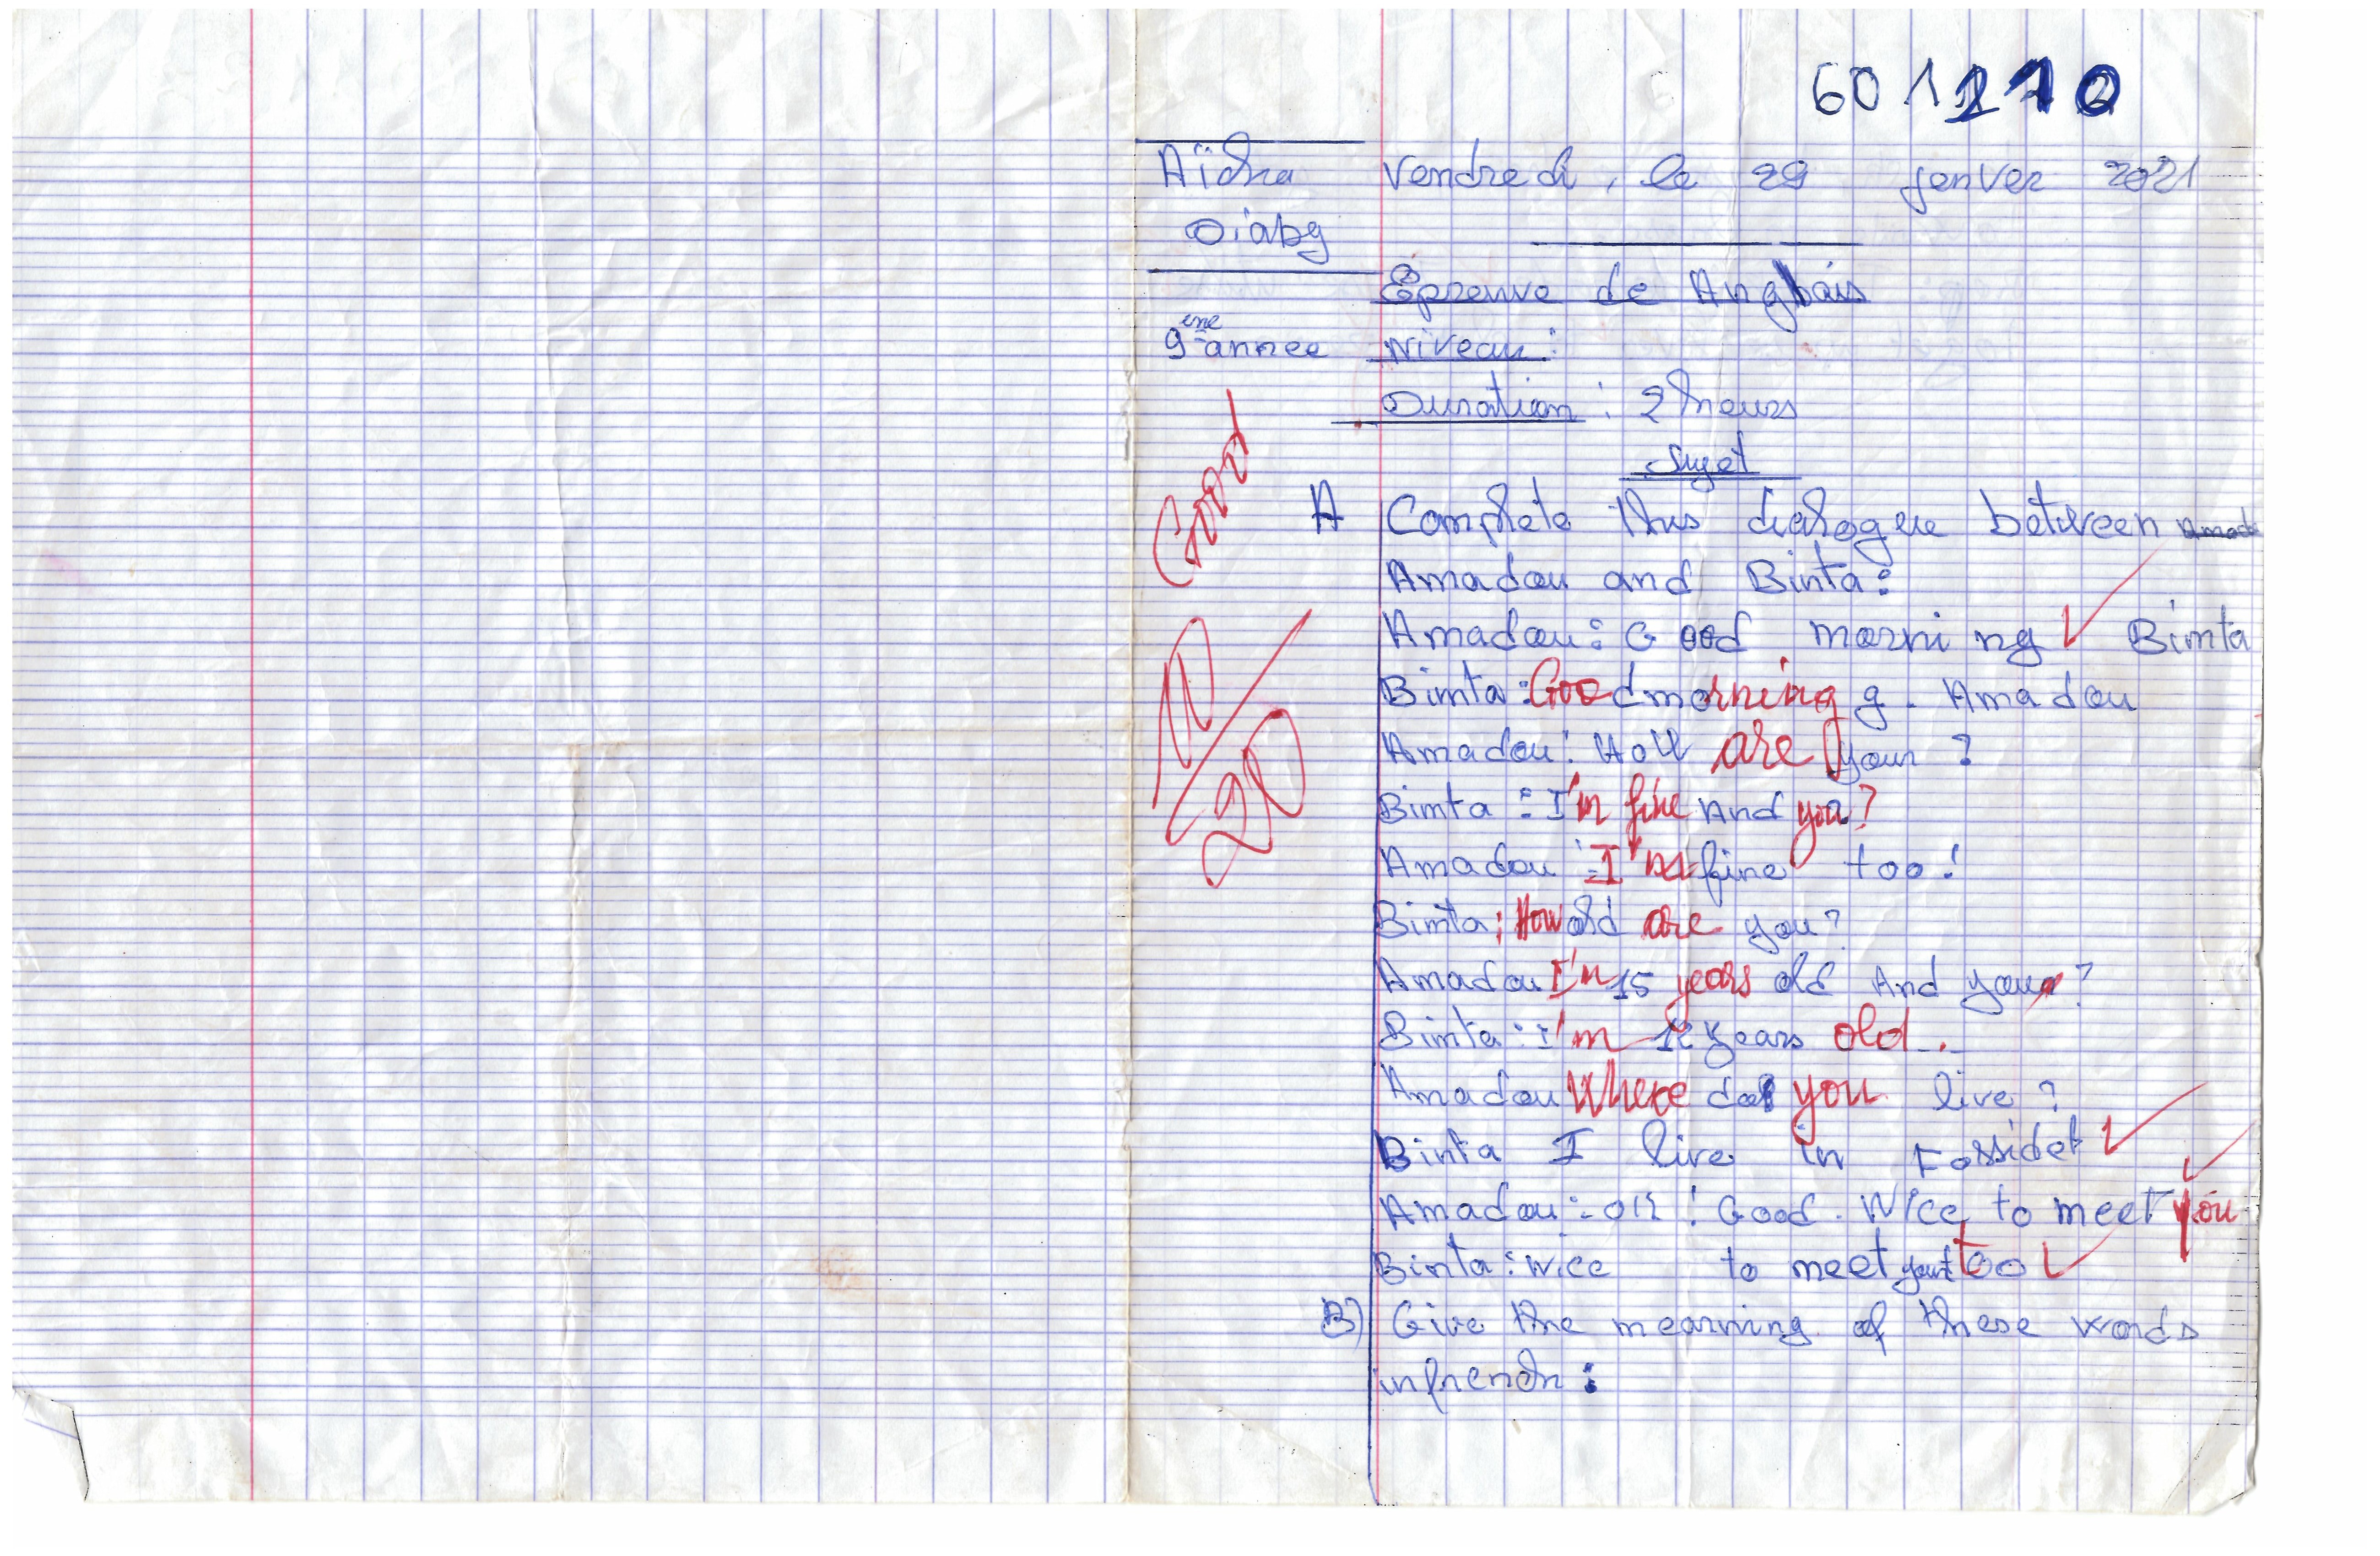 601210
Aïcha Vendredi, le 29 janver 2021
Diaby
Épreuve de Anglais
9ène année Niveau:
Duration: 2 heurs
Good
Sujet
A Complete this dialogue between Amado
Amadou and Binta:
Amadou: Good morning Binta
Binta: Goodmorning g. Amadou
Amadou: How are your ?
Binta: I'm fine And you?
Amadou: I'm fine too!
Binta: How old are you?
Amadou I'm 15 years old And your?
Binta: I'm 12 years old.
Amadou Where do you live ?
Binta I live in Fossidet
Amadou: oh ! Good. Nice to meet you
Binta: Nice to meet your too
20
B) Give the mearning of these words
infrench: